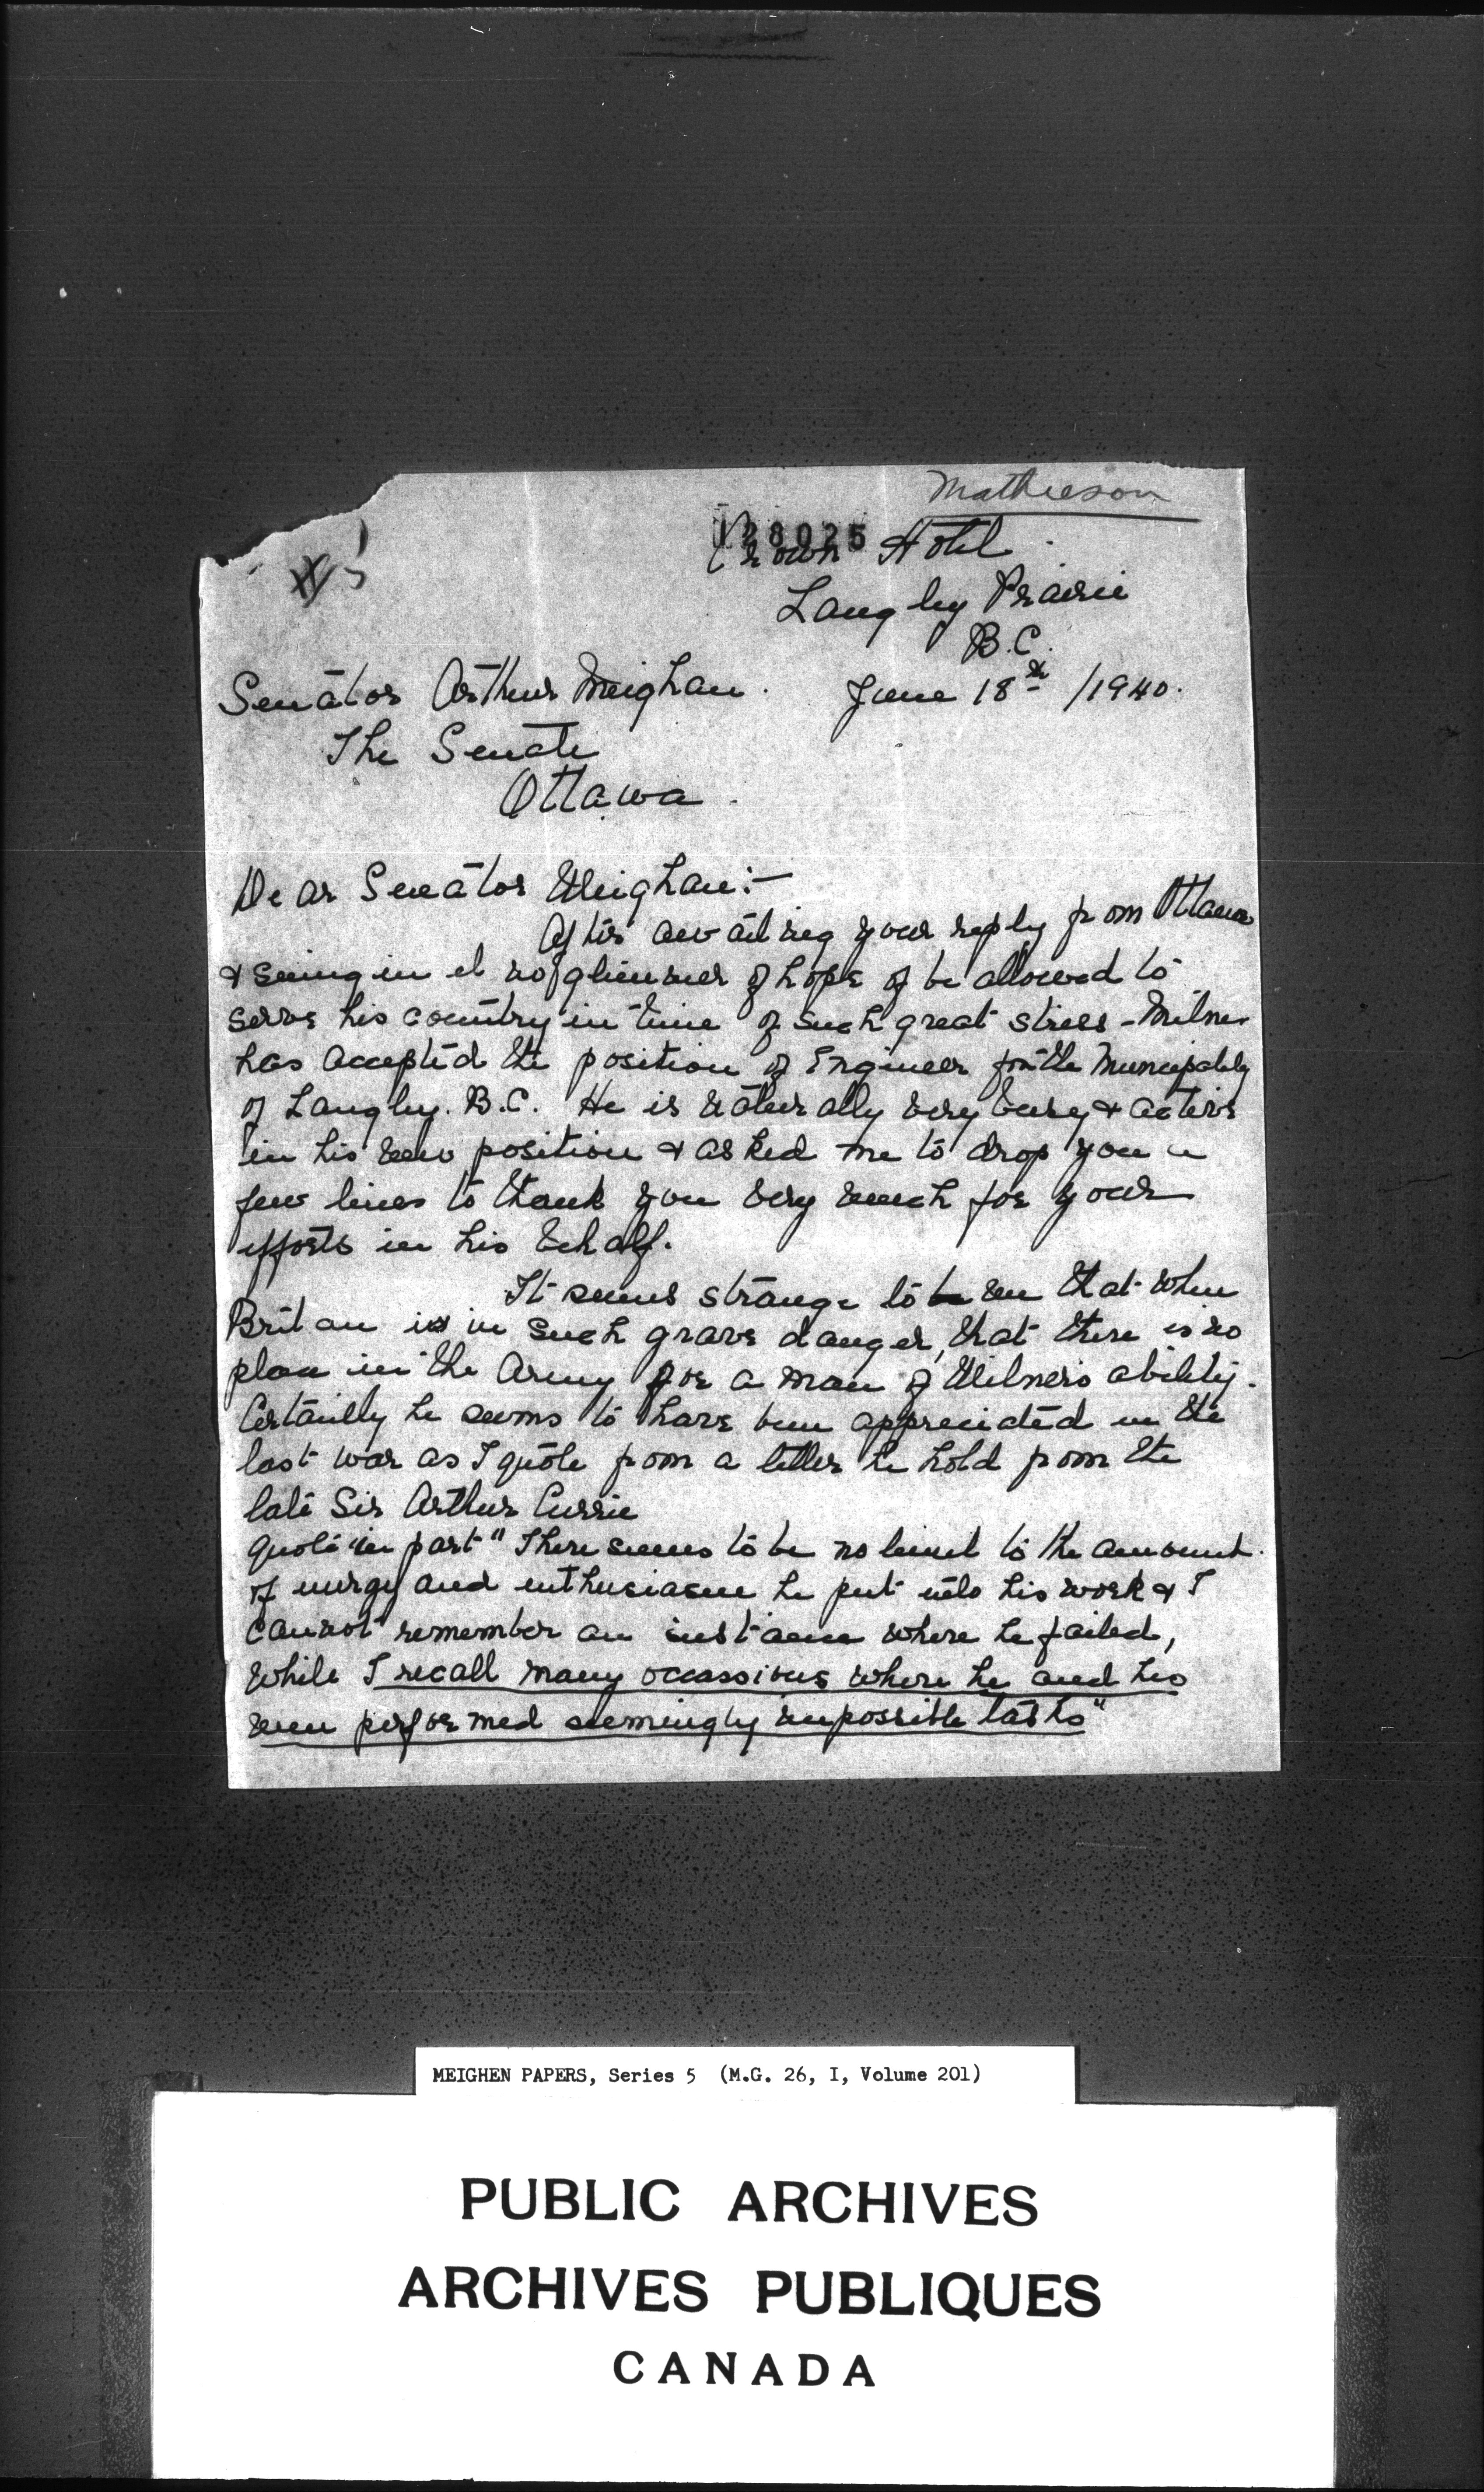 Mathieson
128025
Crown Hotel
Langley Prairie
B.C.
Senator Arthur Meighan.
June 18th /1940.
The Senate
Ottawa.
Dear Senator Meighan:-
After awaiting your reply from Ottawa
& seeing in it no glimmer of hope of be allowed to
serve his country in time of such great stress - Milner
has accepted the position of Engineer for the Municipality
of Langley. B.C. He is naturally very busy & active
in his new position & asked me to drop you a
few lines to thank you very much for your
efforts in his behalf.
It seems strange to me that when
Britan is in such grave danger, that there is no
place in the Army for a man of Milner's ability.
Certainly he seems to have been appreciated in the
last war as I quote from a letter he hold from the
late Sir Arthur Currie
quote in part "There seems to be no limit to the amount
of energy and enthusiasm he put into his work & I
cannot remember an instance where he failed,
while I recall many occassions where he and his
men performed seemingly impossible tasks"
MEIGHEN PAPERS, Series 5 (M.G. 26, I, Volume 201)
PUBLIC ARCHIVES
ARCHIVES PUBLIQUES
CANADA